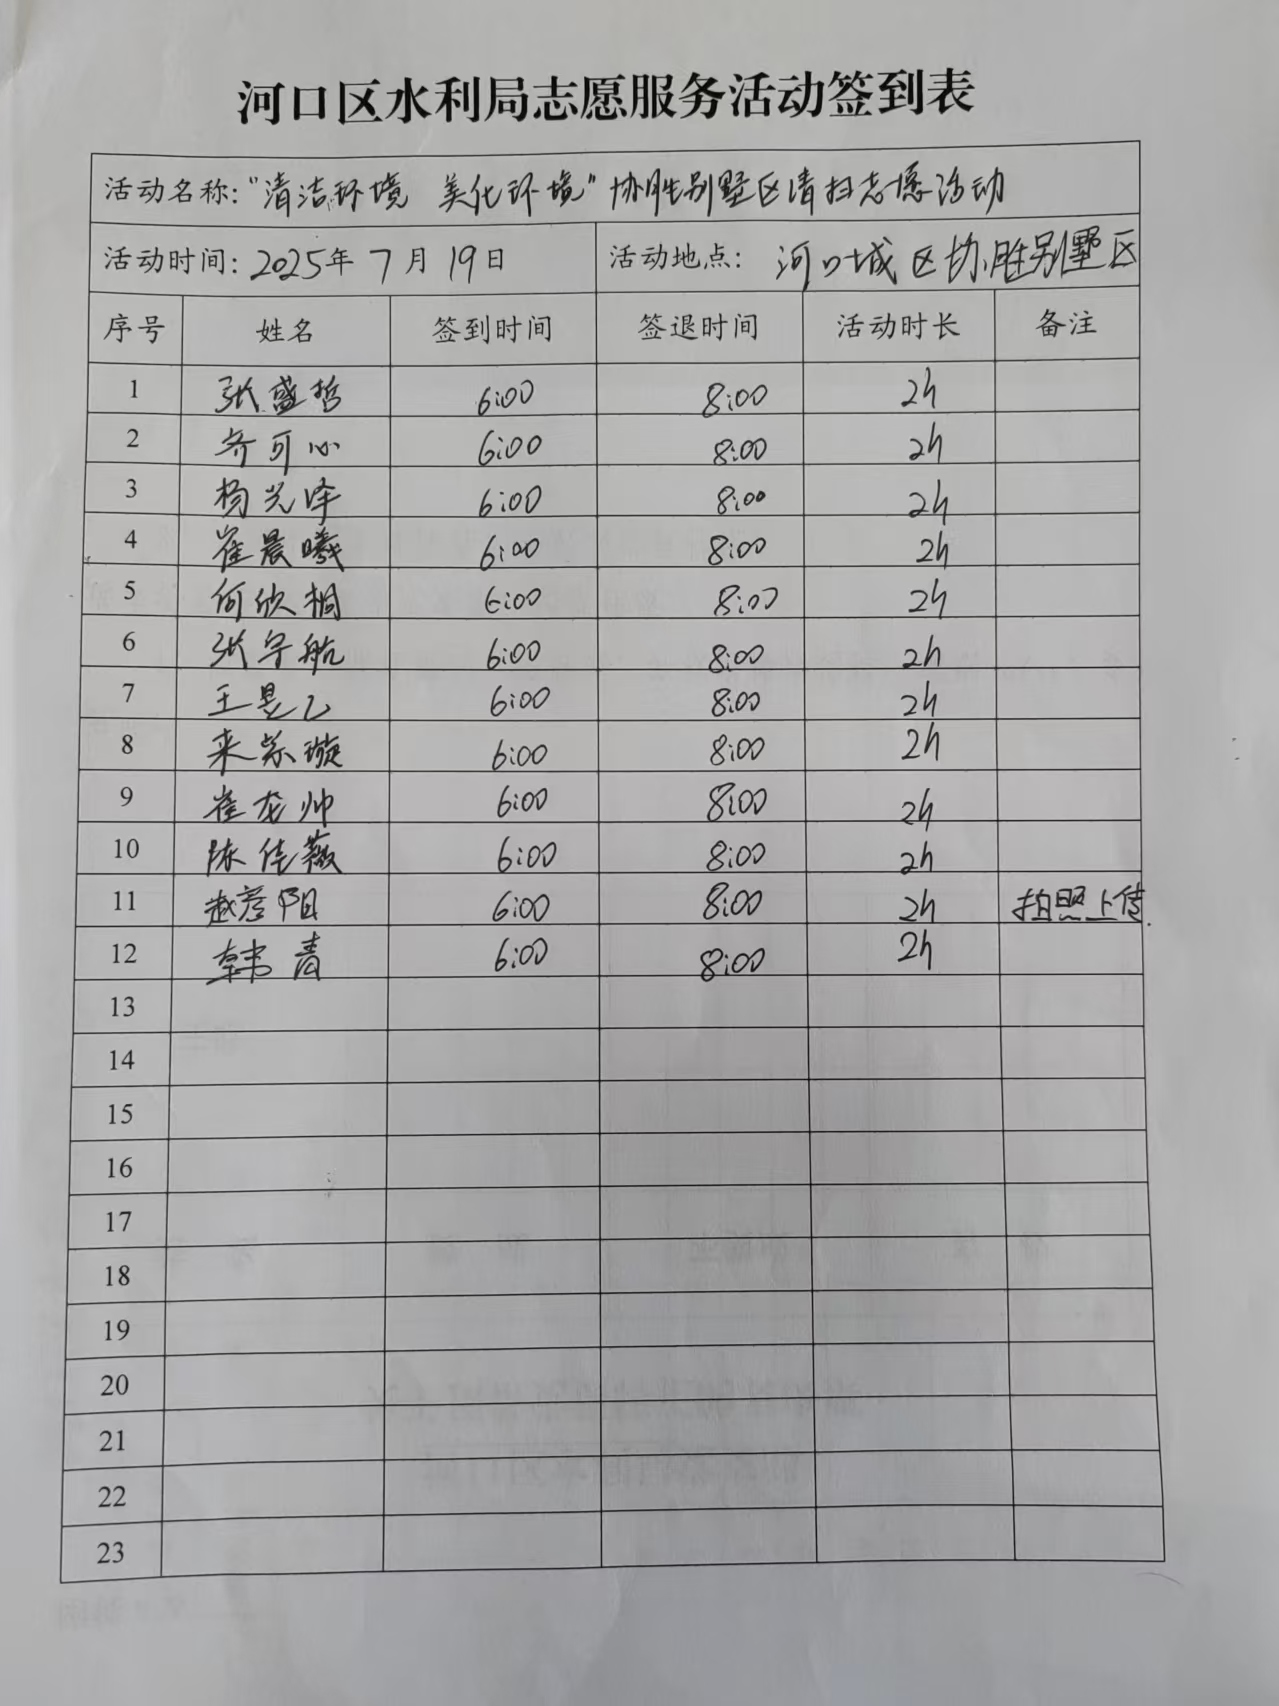 河口区水利局志愿服务活动签到表
活动名称："清洁环境 美化环境"协胜别墅区清扫志愿活动
活动时间：2025年7月19日 活动地点：河口城区协胜别墅区
序号 姓名 签到时间 签退时间 活动时长 备注
1 张盛哲 6:00 8:00 2h
2 齐可心 6:00 8:00 2h
3 杨光泽 6:00 8:00 2h
4 崔晨曦 6:00 8:00 2h
5 何欣桐 6:00 8:00 2h
6 张宇航 6:00 8:00 2h
7 王昱乙 6:00 8:00 2h
8 来紫璇 6:00 8:00 2h
9 崔龙帅 6:00 8:00 2h
10 陈佳薇 6:00 8:00 2h
11 赵彦阳 6:00 8:00 2h 拍照上传.
12 韩青 6:00 8:00 2h
13
14
15
16
17
18
19
20
21
22
23